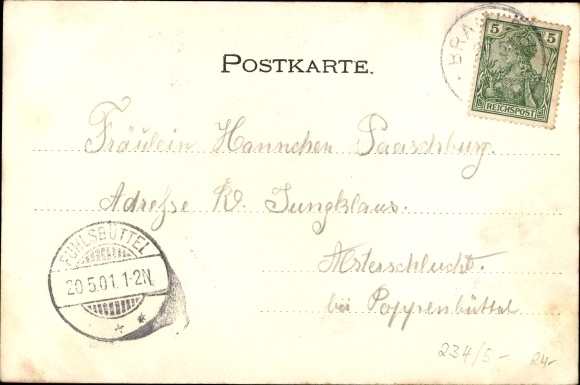 5 5
BRA
REICHSPOST
POSTKARTE.
Fräulein Hannchen Paaschburg.
Adresse W. Jungklaus.
FUHLSBÜTTEL
20.5.01.1-2N.
Alsterschlucht.
bei Poppenbüttel
234/5- 24-